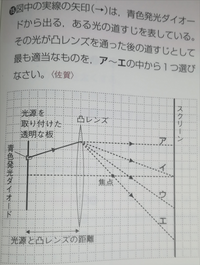 図中の実線の矢印(→)は，青色発光ダイオー
ドから出る，ある光の道すじを表している。
その光が凸レンズを通った後の道すじとして
最も適当なものを，ア〜エの中から1つ選び
なさい。〈佐賀〉
スクリーン
凸レンズ
光源を
取り付けた
透明な板
青色発光ダイオード
焦点
ア
イ
ウ
エ
光源と凸レンズの距離